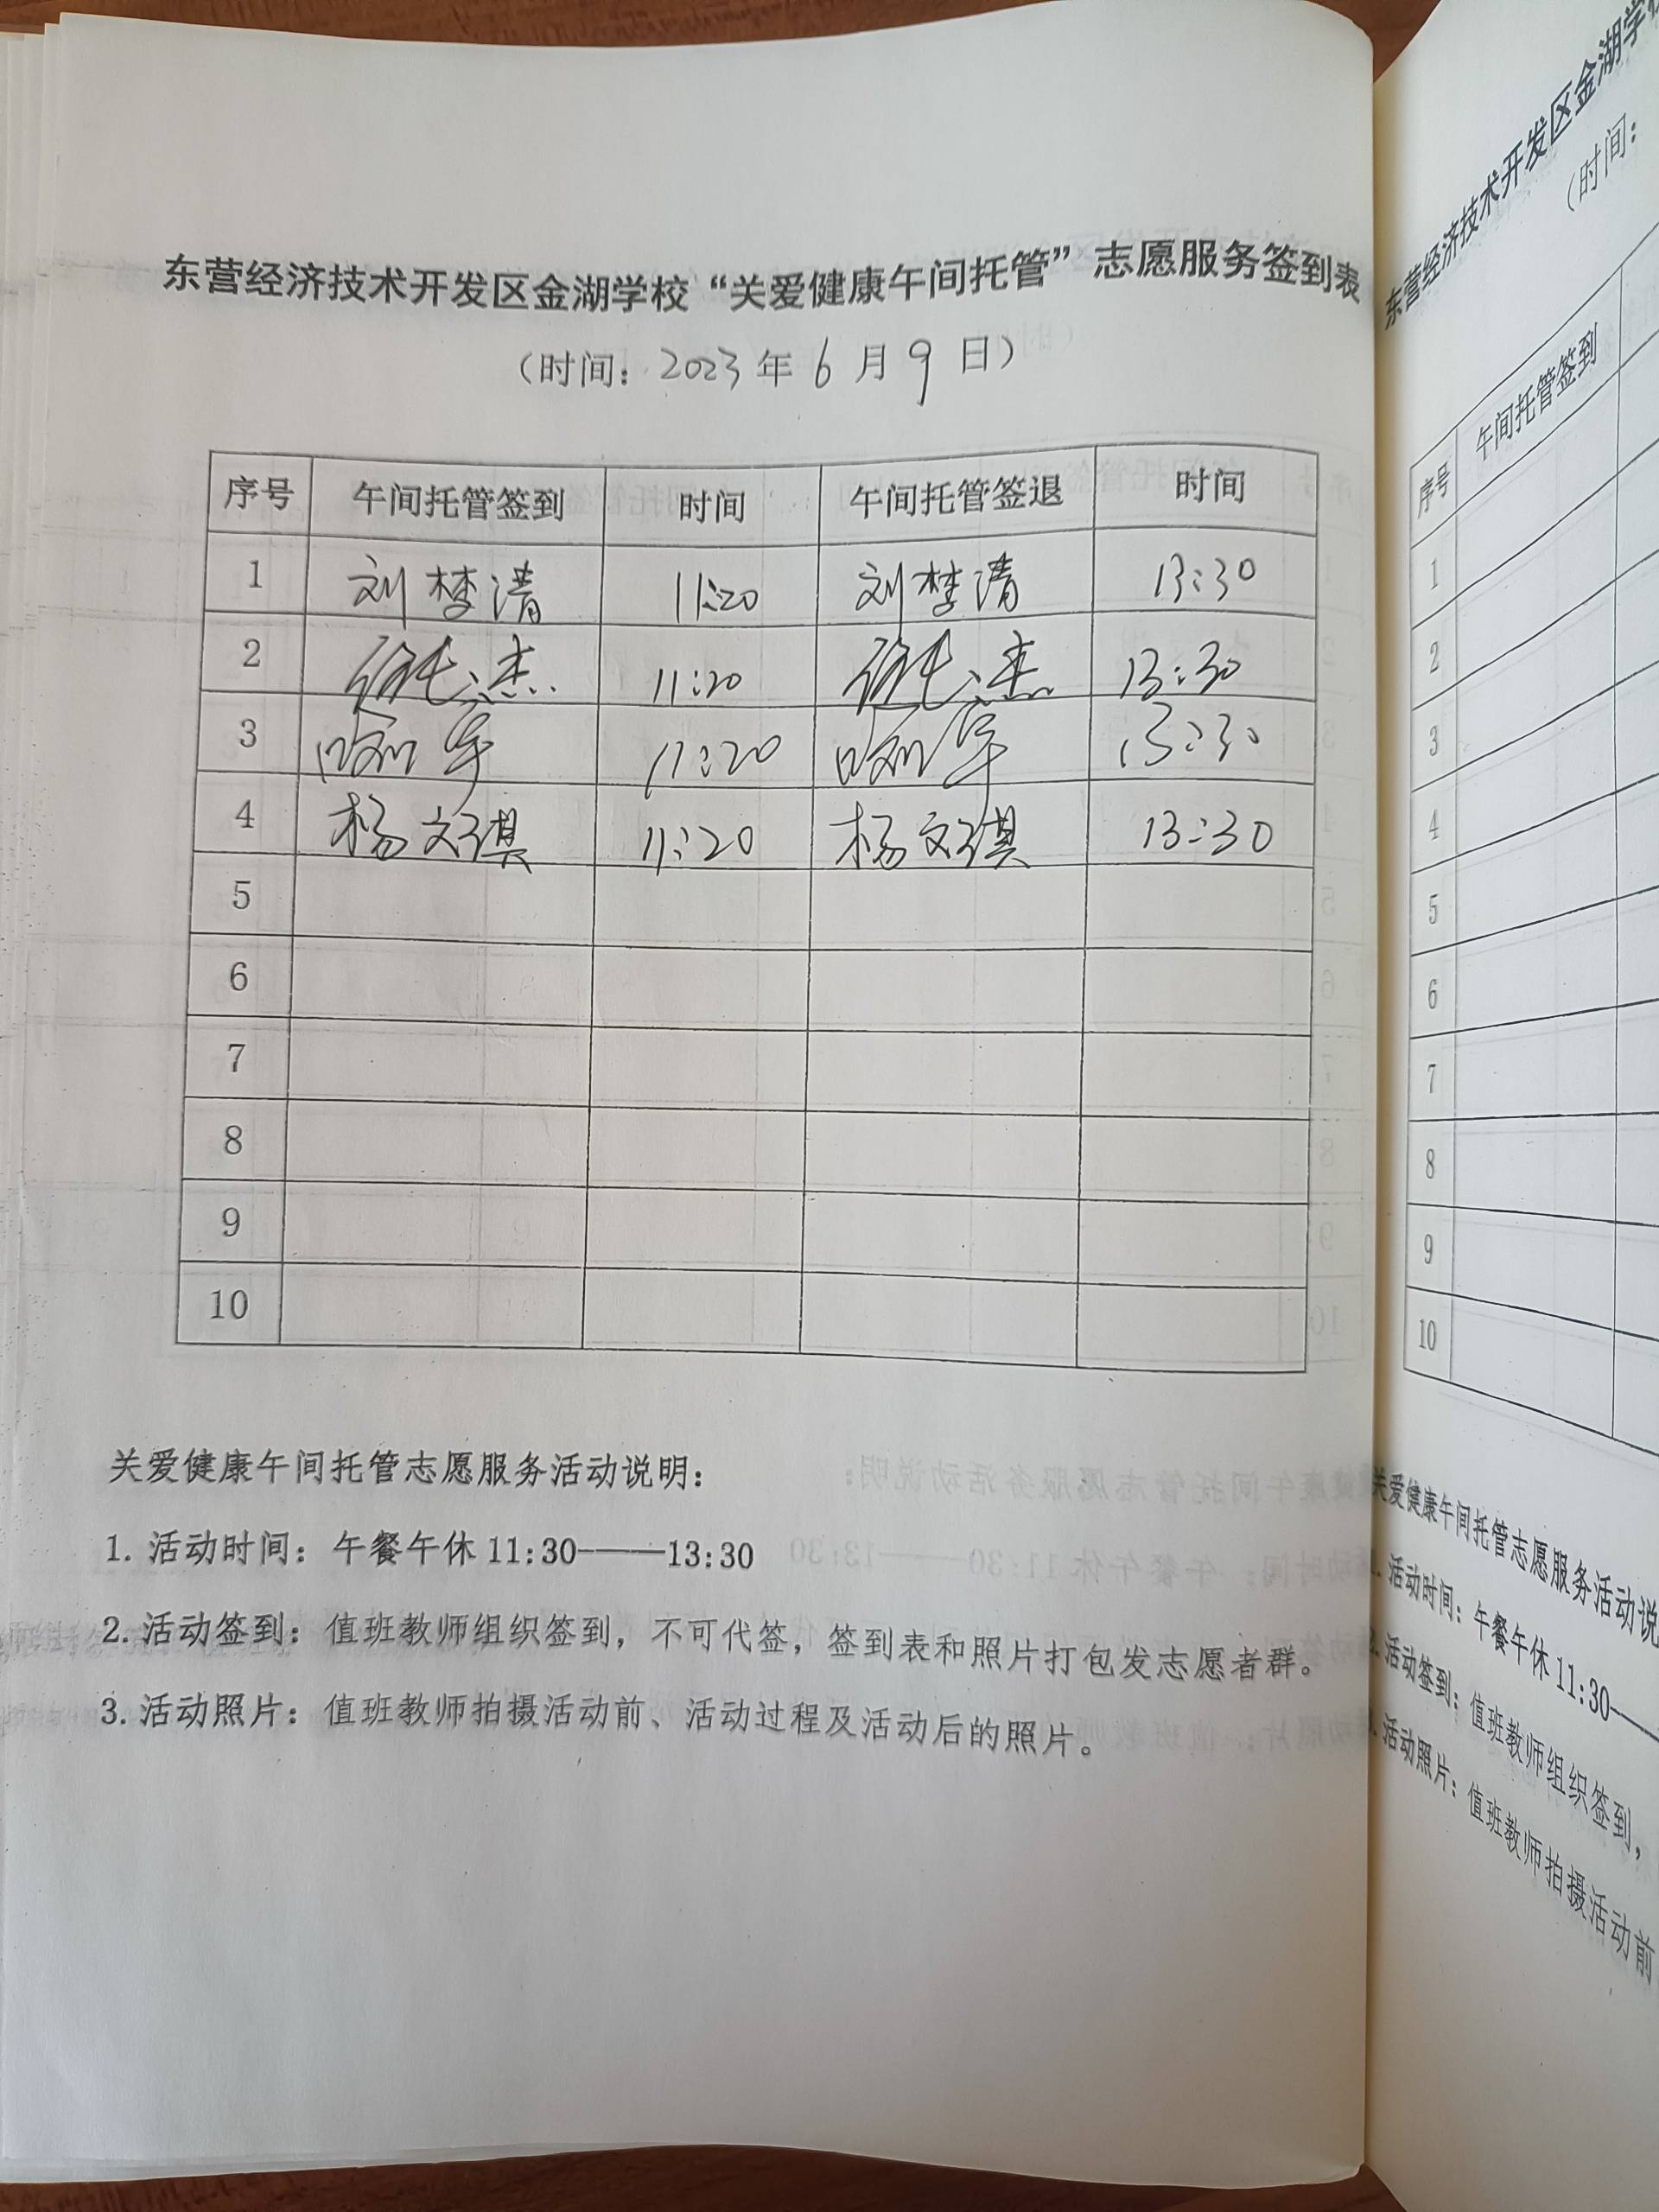 东营经济技术开发区金湖学校“关爱健康午间托管”志愿服务签到表
（时间：2023年6月9日）
序号 午间托管签到 时间 午间托管签退 时间
1 刘梦清 11:20 刘梦清 13:30
2 11:20 13:30
3 11:20 13:30
4 杨文琪 11:20 杨文琪 13:30
5
6
7
8
9
10
关爱健康午间托管志愿服务活动说明：
1. 活动时间：午餐午休 11:30——13:30
2. 活动签到：值班教师组织签到，不可代签，签到表和照片打包发志愿者群。
3. 活动照片：值班教师拍摄活动前、活动过程及活动后的照片。
东营经济技术开发区金湖学校
（时间：
序号 午间托管签到
1
2
3
4
5
6
7
8
9
10
关爱健康午间托管志愿服务活动说
1. 活动时间：午餐午休 11:30——
2. 活动签到：值班教师组织签到，
3. 活动照片：值班教师拍摄活动前